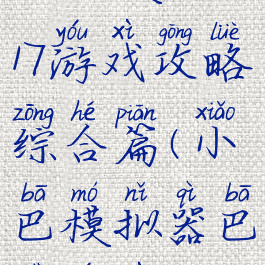 yóu xì gōng lüè
17游戏攻略
zōng hé piān xiǎo
综合篇(小
bā mó nǐ qì bā
巴模拟器巴